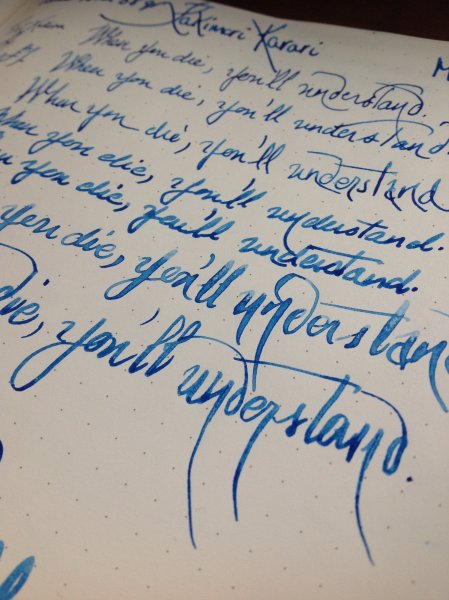 Takimori Karari
When you die, you'll understand.
When you die, you'll understand.
When you die, you'll understand
when you die, you'll understand.
you die, you'll understand.
you die, you'll understand
die, you'll understand.